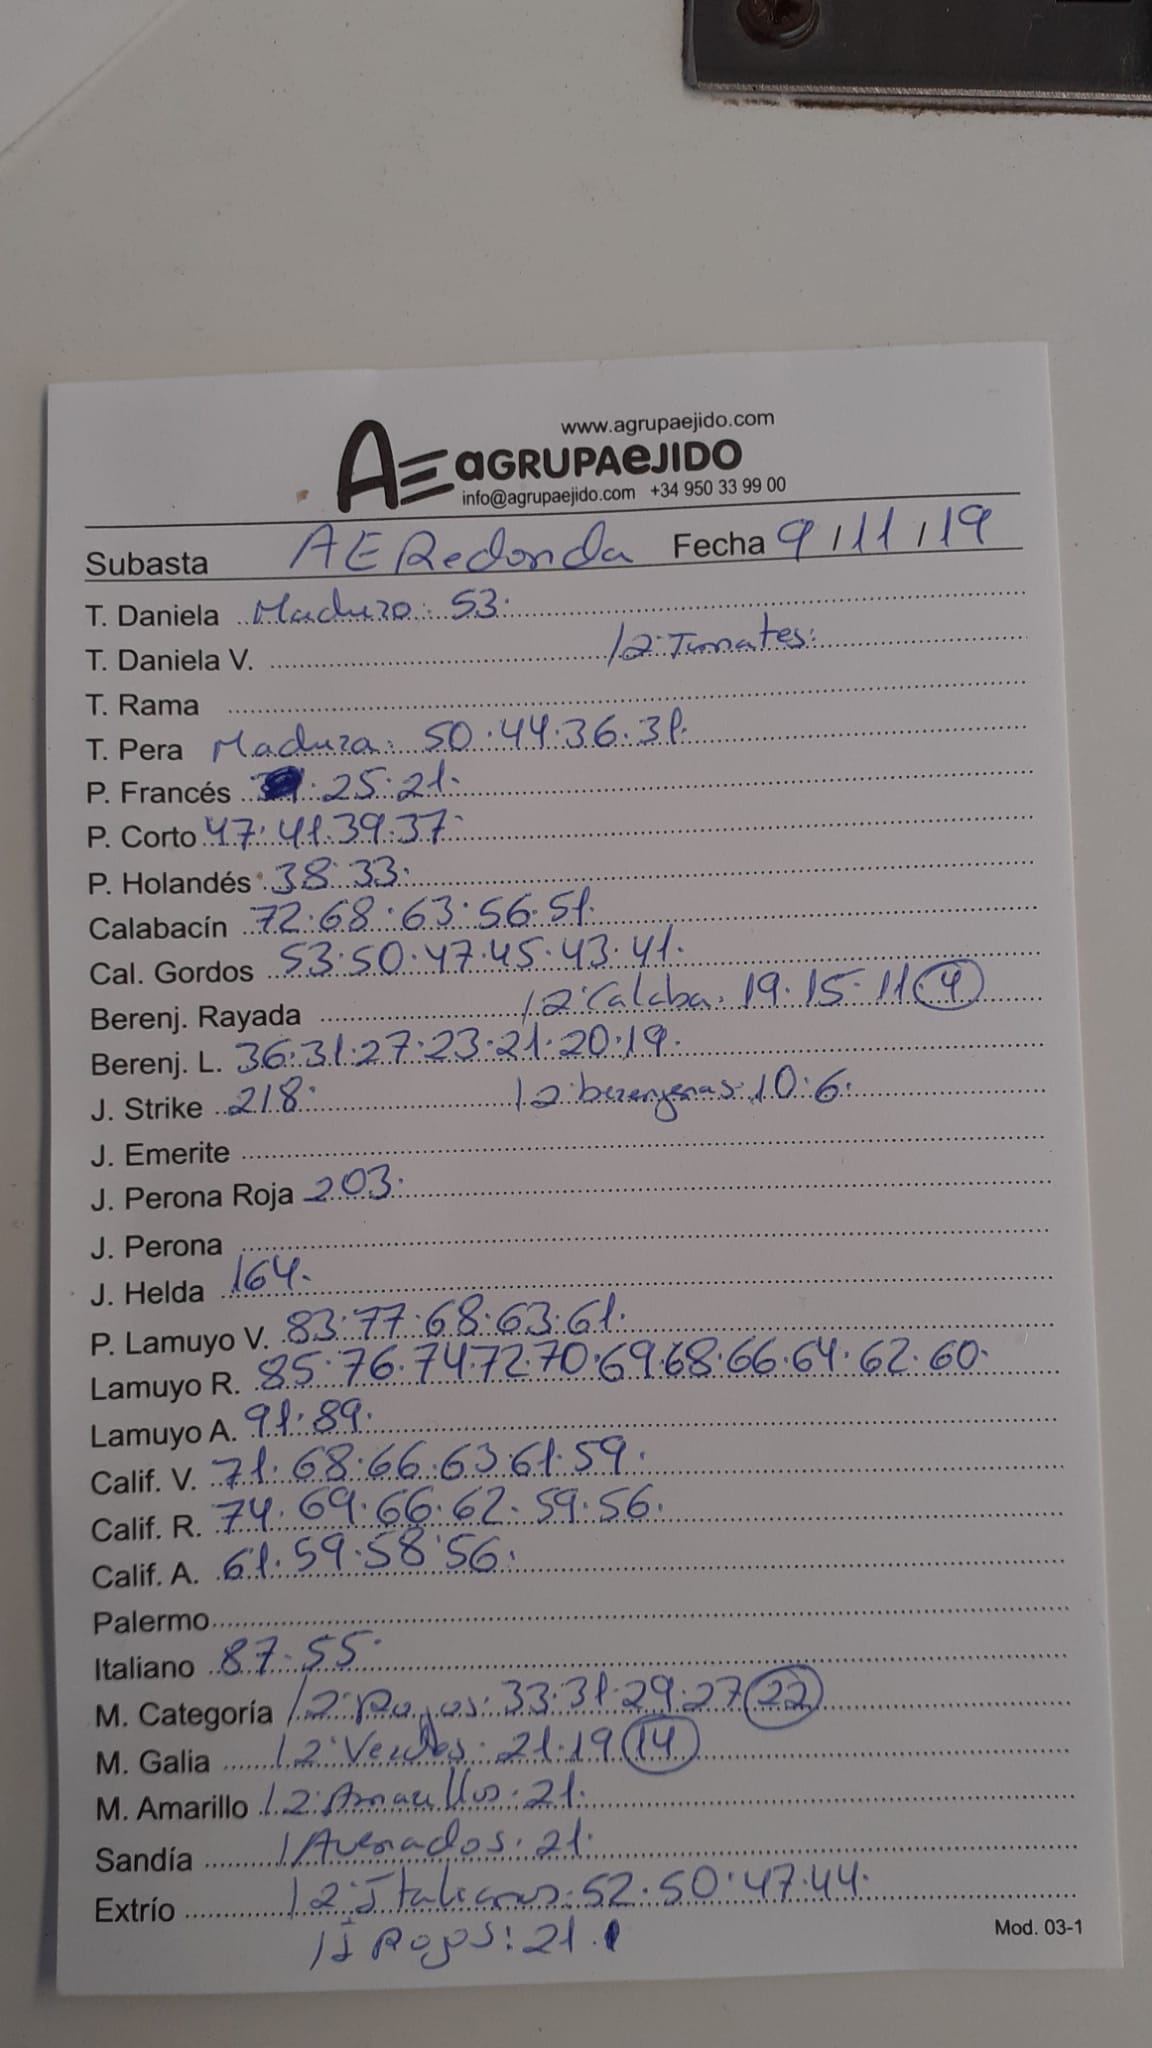 www.agrupaejido.com
AE aGRUPAeJIDO
info@agrupaejido.com +34 950 33 99 00
Subasta AE Redonda Fecha 9/11/19
T. Daniela Maduro: 53.
T. Daniela V. /2: Tomates:
T. Rama
T. Pera Madura: 50.44.36.31.
P. Francés 25.21.
P. Corto 47.41.39.37.
P. Holandés 38.33.
Calabacín 72.68.63.56.51.
Cal. Gordos 53.50.47.45.43.41.
Berenj. Rayada /2: Calaba. 19.15.11.4
Berenj. L. 36.31.27.23.21.20.19.
J. Strike 218. /2: berenjenas: 10.6.
J. Emerite
J. Perona Roja 203.
J. Perona
J. Helda 164.
P. Lamuyo V. 83.77.68.63.61.
Lamuyo R. 85.76.74.72.70.69.68.66.64.62.60.
Lamuyo A. 91.89.
Calif. V. 71.68.66.63.61.59.
Calif. R. 74.69.66.62.59.56.
Calif. A. 61.59.58.56.
Palermo
Italiano 87.55.
M. Categoría /2: Rojos: 33.31.29.27 22
M. Galia /2: Verdes: 21.19 14
M. Amarillo /2: Amarillos: 21.
Sandía /Averados. 21.
Extrío /2: Italianos: 52.50.47.44.
Rojos: 21.
Mod. 03-1